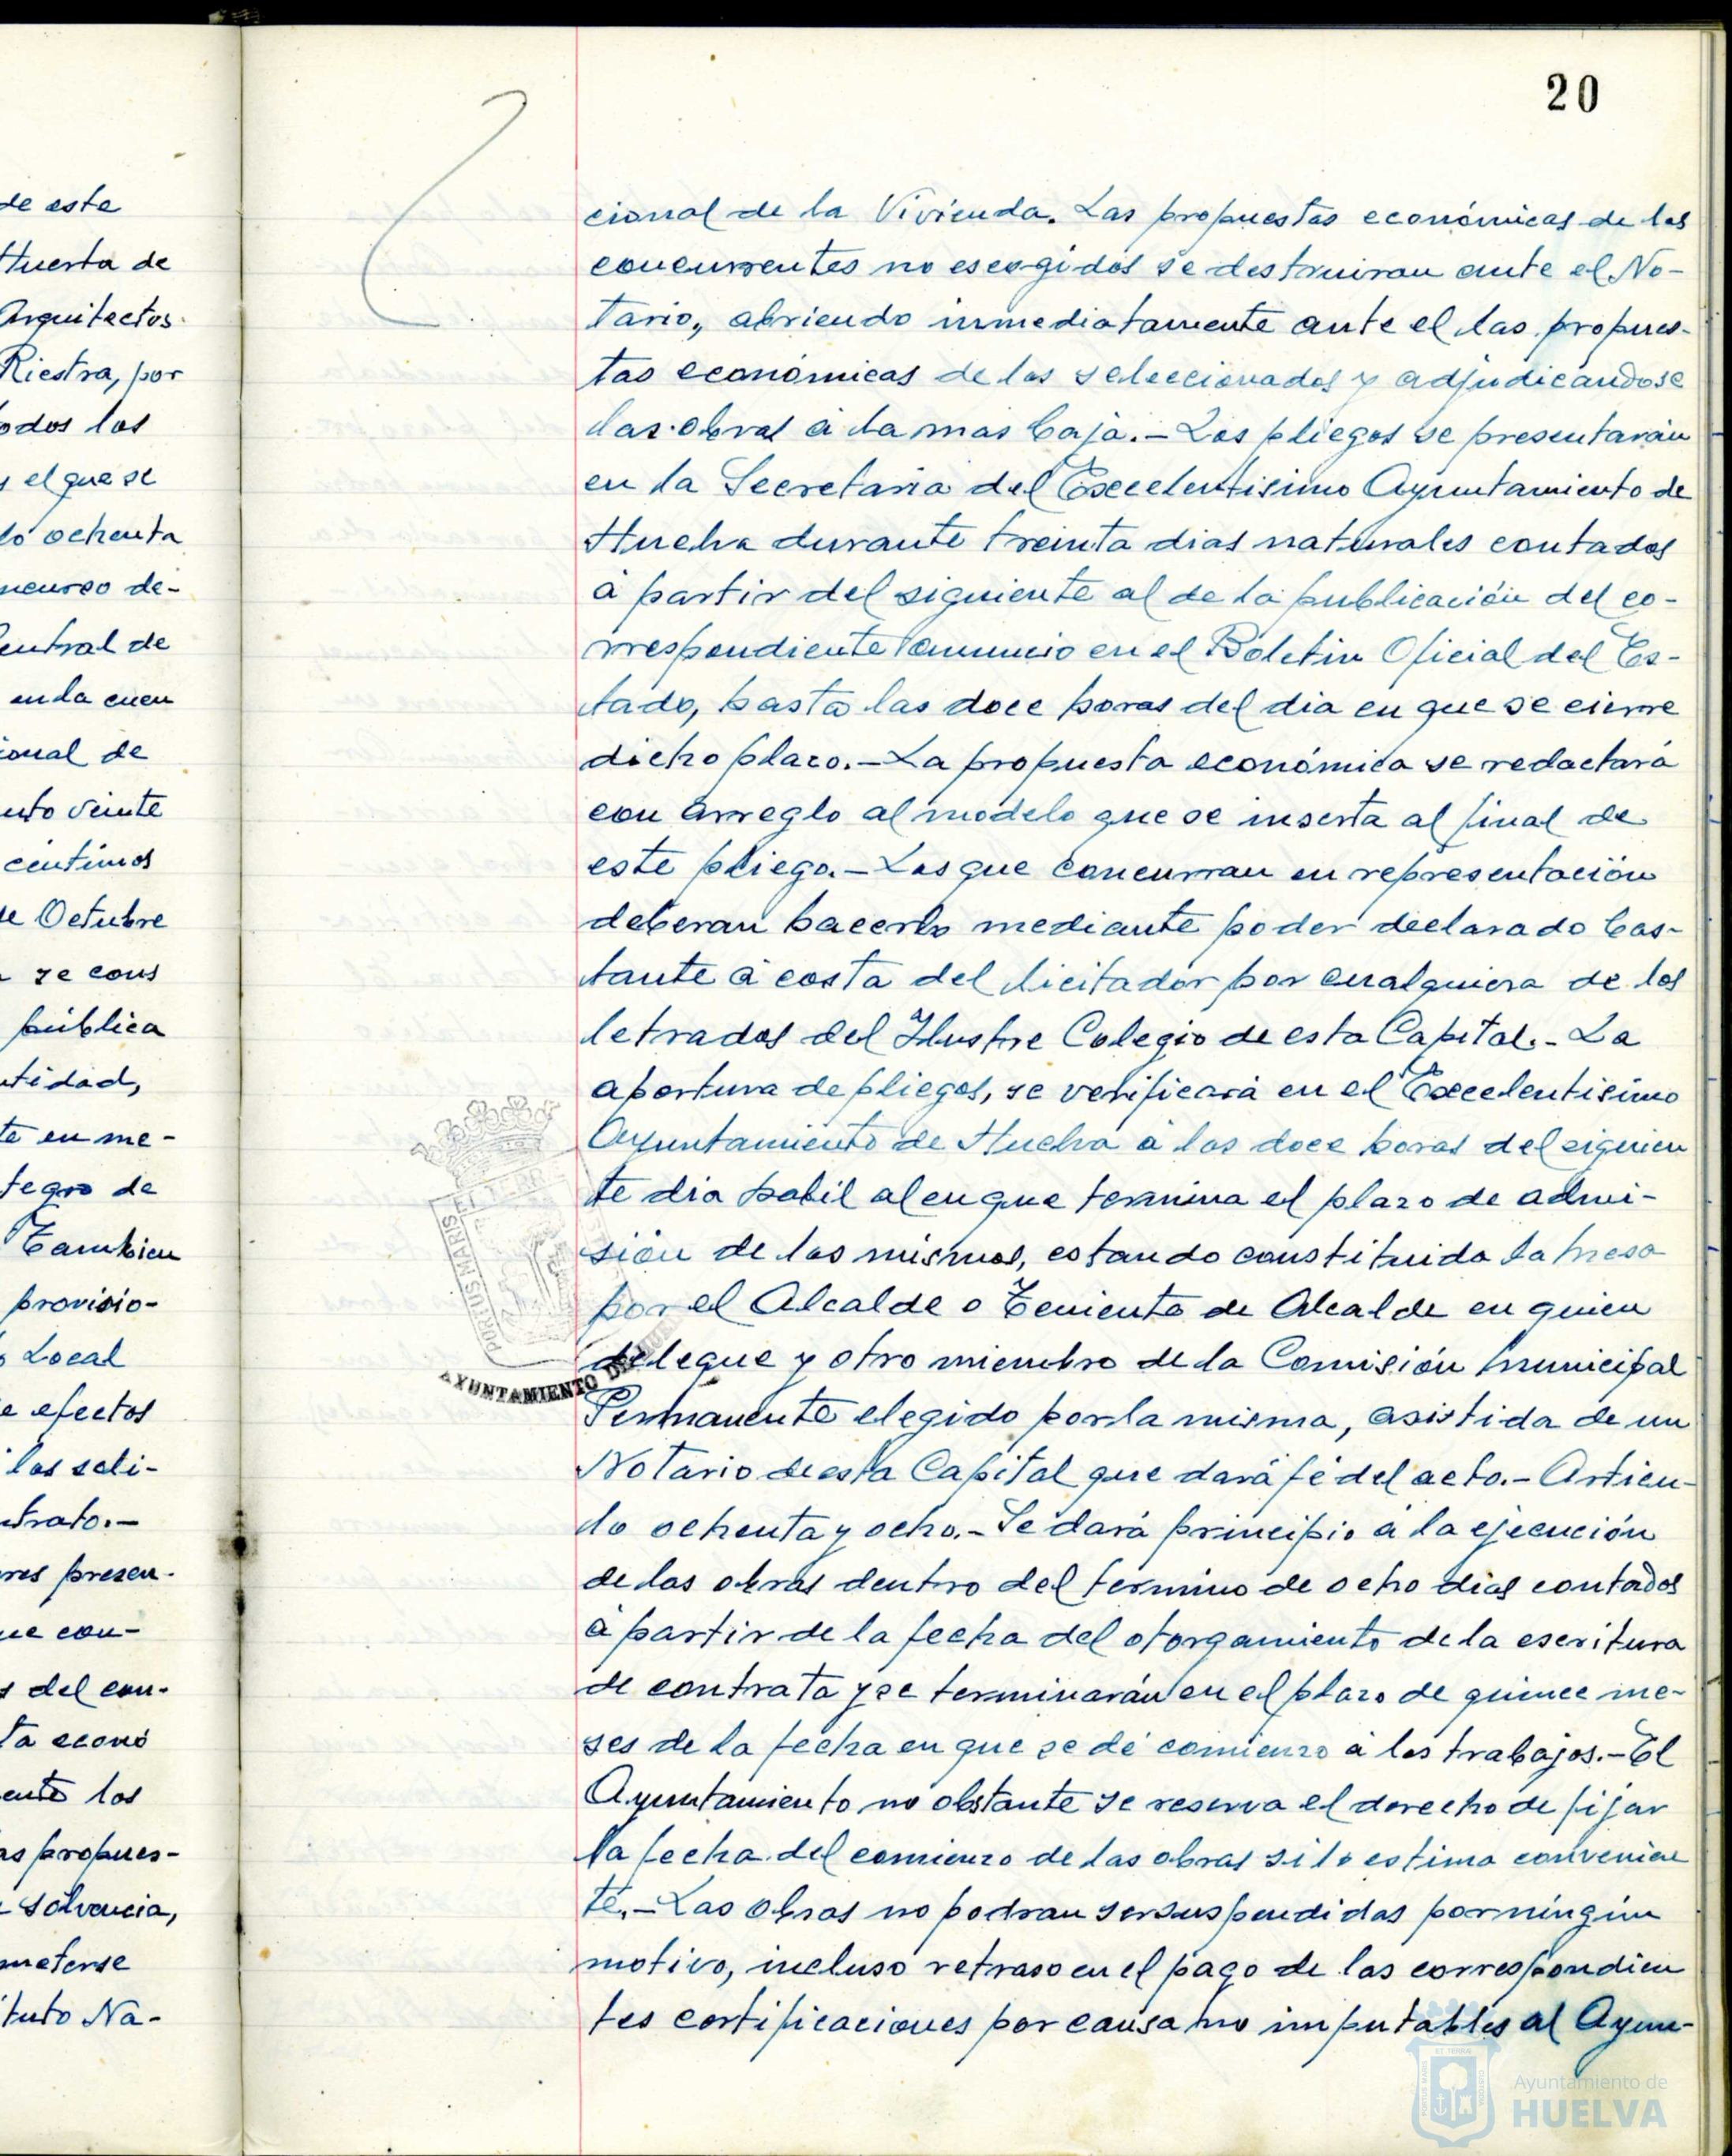 20
de este
Huerta de
Arquitectos
Riestra, por
odos los
y el que se
lo ochenta
ncurso de-
entral de
enda cuen
ional de
ento veinte
centimos
de Octubre
se cons
pública
ntidad,
te en me-
tegro de
Tambien
provisio-
Local
e efectos
los soli-
trato.-
res presen-
ue con-
s del con-
ta econó
ente los
as propues-
solvencia,
meterse
tuto Na-
cional de la Vivienda. Las propuestas económicas de los
concurrentes no escogidos se destruiran ante el No-
tario, abriendo inmediatamente ante el las propues-
tas económicas de los seleccionados y adjudicandose
las obras á la mas baja.- Los pliegos se presentarán
en la Secretaria del Excelentisimo Ayuntamiento de
Huelva durante treinta dias naturales contados
á partir del siguiente al de la publicación del co-
rrespondiente anuncio en el Boletin Oficial del Es-
tado, hasta las doce horas del dia en que se cierre
dicho plazo.- La propuesta económica se redactará
con arreglo al modelo que se inserta al final de
este pliego.- Los que concurran en representación
deberan hacerlo mediante poder declarado bas-
tante á costa del licitador por cualquiera de los
letrados del Ilustre Colegio de esta Capital.- La
apertura de pliegos, se verificará en el Excelentisimo
Ayuntamiento de Huelva á las doce horas del siguien
te dia habil al en que termina el plazo de admi-
sión de los mismos, estando constituida la mesa
por el Alcalde o Teniente de Alcalde en quien
delegue y otro miembro de la Comisión Municipal
Permanente elegido por la misma, asistida de un
Notario de esta Capital que dará fé del acto.- Articu-
lo ochenta y ocho.- Se dará principio á la ejecución
de las obras dentro del termino de ocho dias contados
á partir de la fecha del otorgamiento de la escritura
de contrata y se terminarán en el plazo de quince me-
ses de la fecha en que se dé comienzo á los trabajos.- El
Ayuntamiento no obstante se reserva el derecho de fijar
la fecha del comienzo de las obras si lo estima convenien
te.- Las obras no podran ser suspendidas por ningún
motivo, incluso retraso en el pago de las correspondien
tes certificaciones por causa no imputables al Ayun-
PORTUS MARIS ET TERR
AYUNTAMIENTO DE
Ayuntamiento de
HUELVA